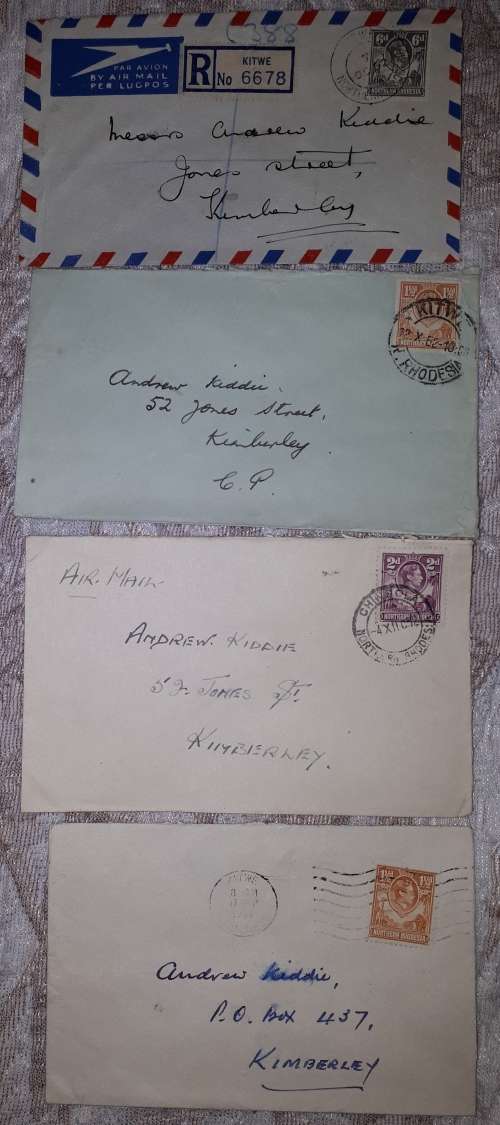 C388
PAR AVION
BY AIR MAIL
PER LUGPOS
R
KITWE
No 6678
6d 6d
NORTHERN RHODESIA
Messrs Andrew Kiddie
Jones street,
Kimberley
1½d 1½d
KITWE
N. RHODESIA
Andrew Kiddie.
52 Jones Street,
Kimberley
C.P.
AIR MAIL
2d 2d
NORTHERN RHODESIA
ANDREW KIDDIE
52 JONES ST.
KIMBERLEY.
KITWE
1½d 1½d
NORTHERN RHODESIA
Andrew Kiddie,
P.O. Box 437,
KIMBERLEY